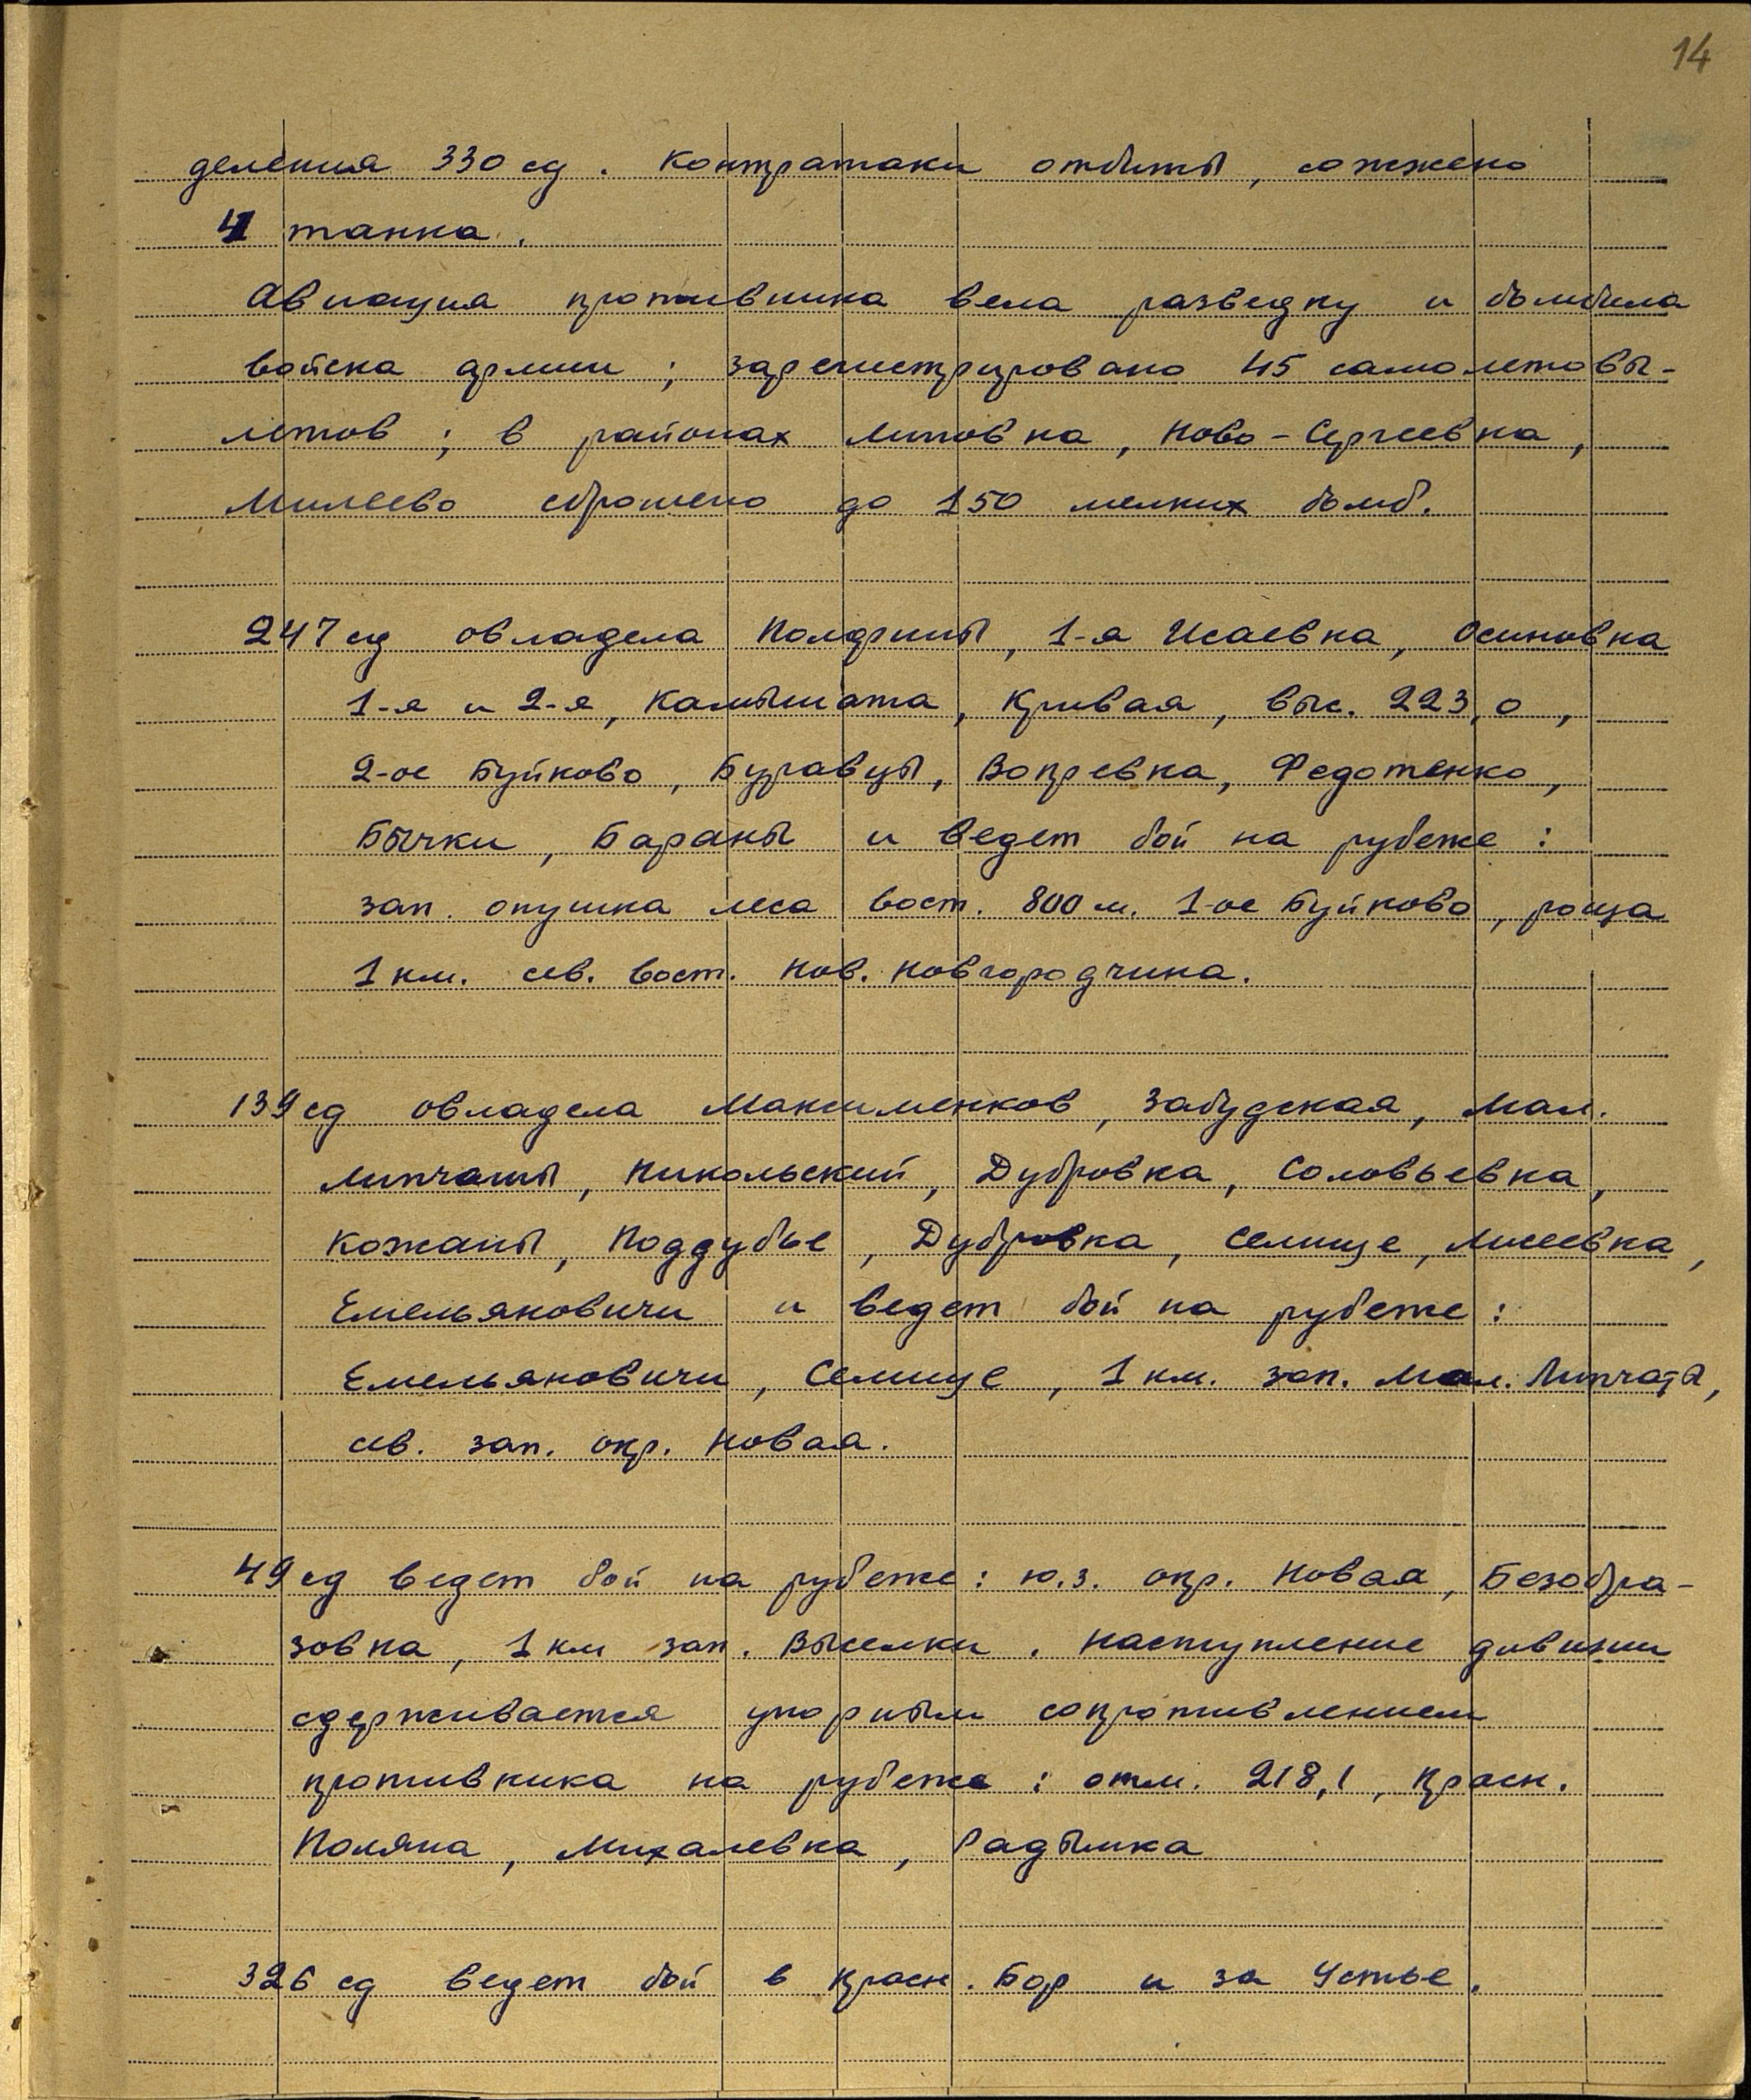 14
деления 330 сд. Контратаки отбиты, сожжено
4 танка.
Авиация противника вела разведку и бомбила
войска армии; зарегистрировано 45 самолетовы-
летов; в районах Литовка, Ново-Сергеевка,
Милеево сброшено до 150 мелких бомб.
247 сд овладела Полдрины, 1-я Исаевка, Осиновка
1-я и 2-я, Камышата, Кривая, выс. 223,0,
2-ое Буйково, Буравцы, Вопревка, Федотенко,
Бычки, Бараны и ведет бой на рубеже:
зап. опушка леса вост. 800 м. 1-ое Буйково, роща
1 км. сев. вост. Нов. Новгородчина.
139 сд овладела Максименков, Забудская, Мал.
Липчаты, Никольский, Дубровка, Соловьевка,
Кожаны, Поддубье, Дубровка, Селище, Лисеевка,
Емельяновичи и ведет бой на рубеже:
Емельяновичи, Селище, 1 км. зап. Мал. Липчаты,
сев. зап. окр. Новая.
49 сд ведет бой на рубеже: ю.з. окр. Новая, Безобра-
зовка, 1 км зап. Выселки. Наступление дивизии
сдерживается упорным сопротивлением
противника на рубеже: отм. 218,1, Красн.
Поляна, Михалевка, Радымка
326 сд ведет бой в Красн. Бор и за Устье.